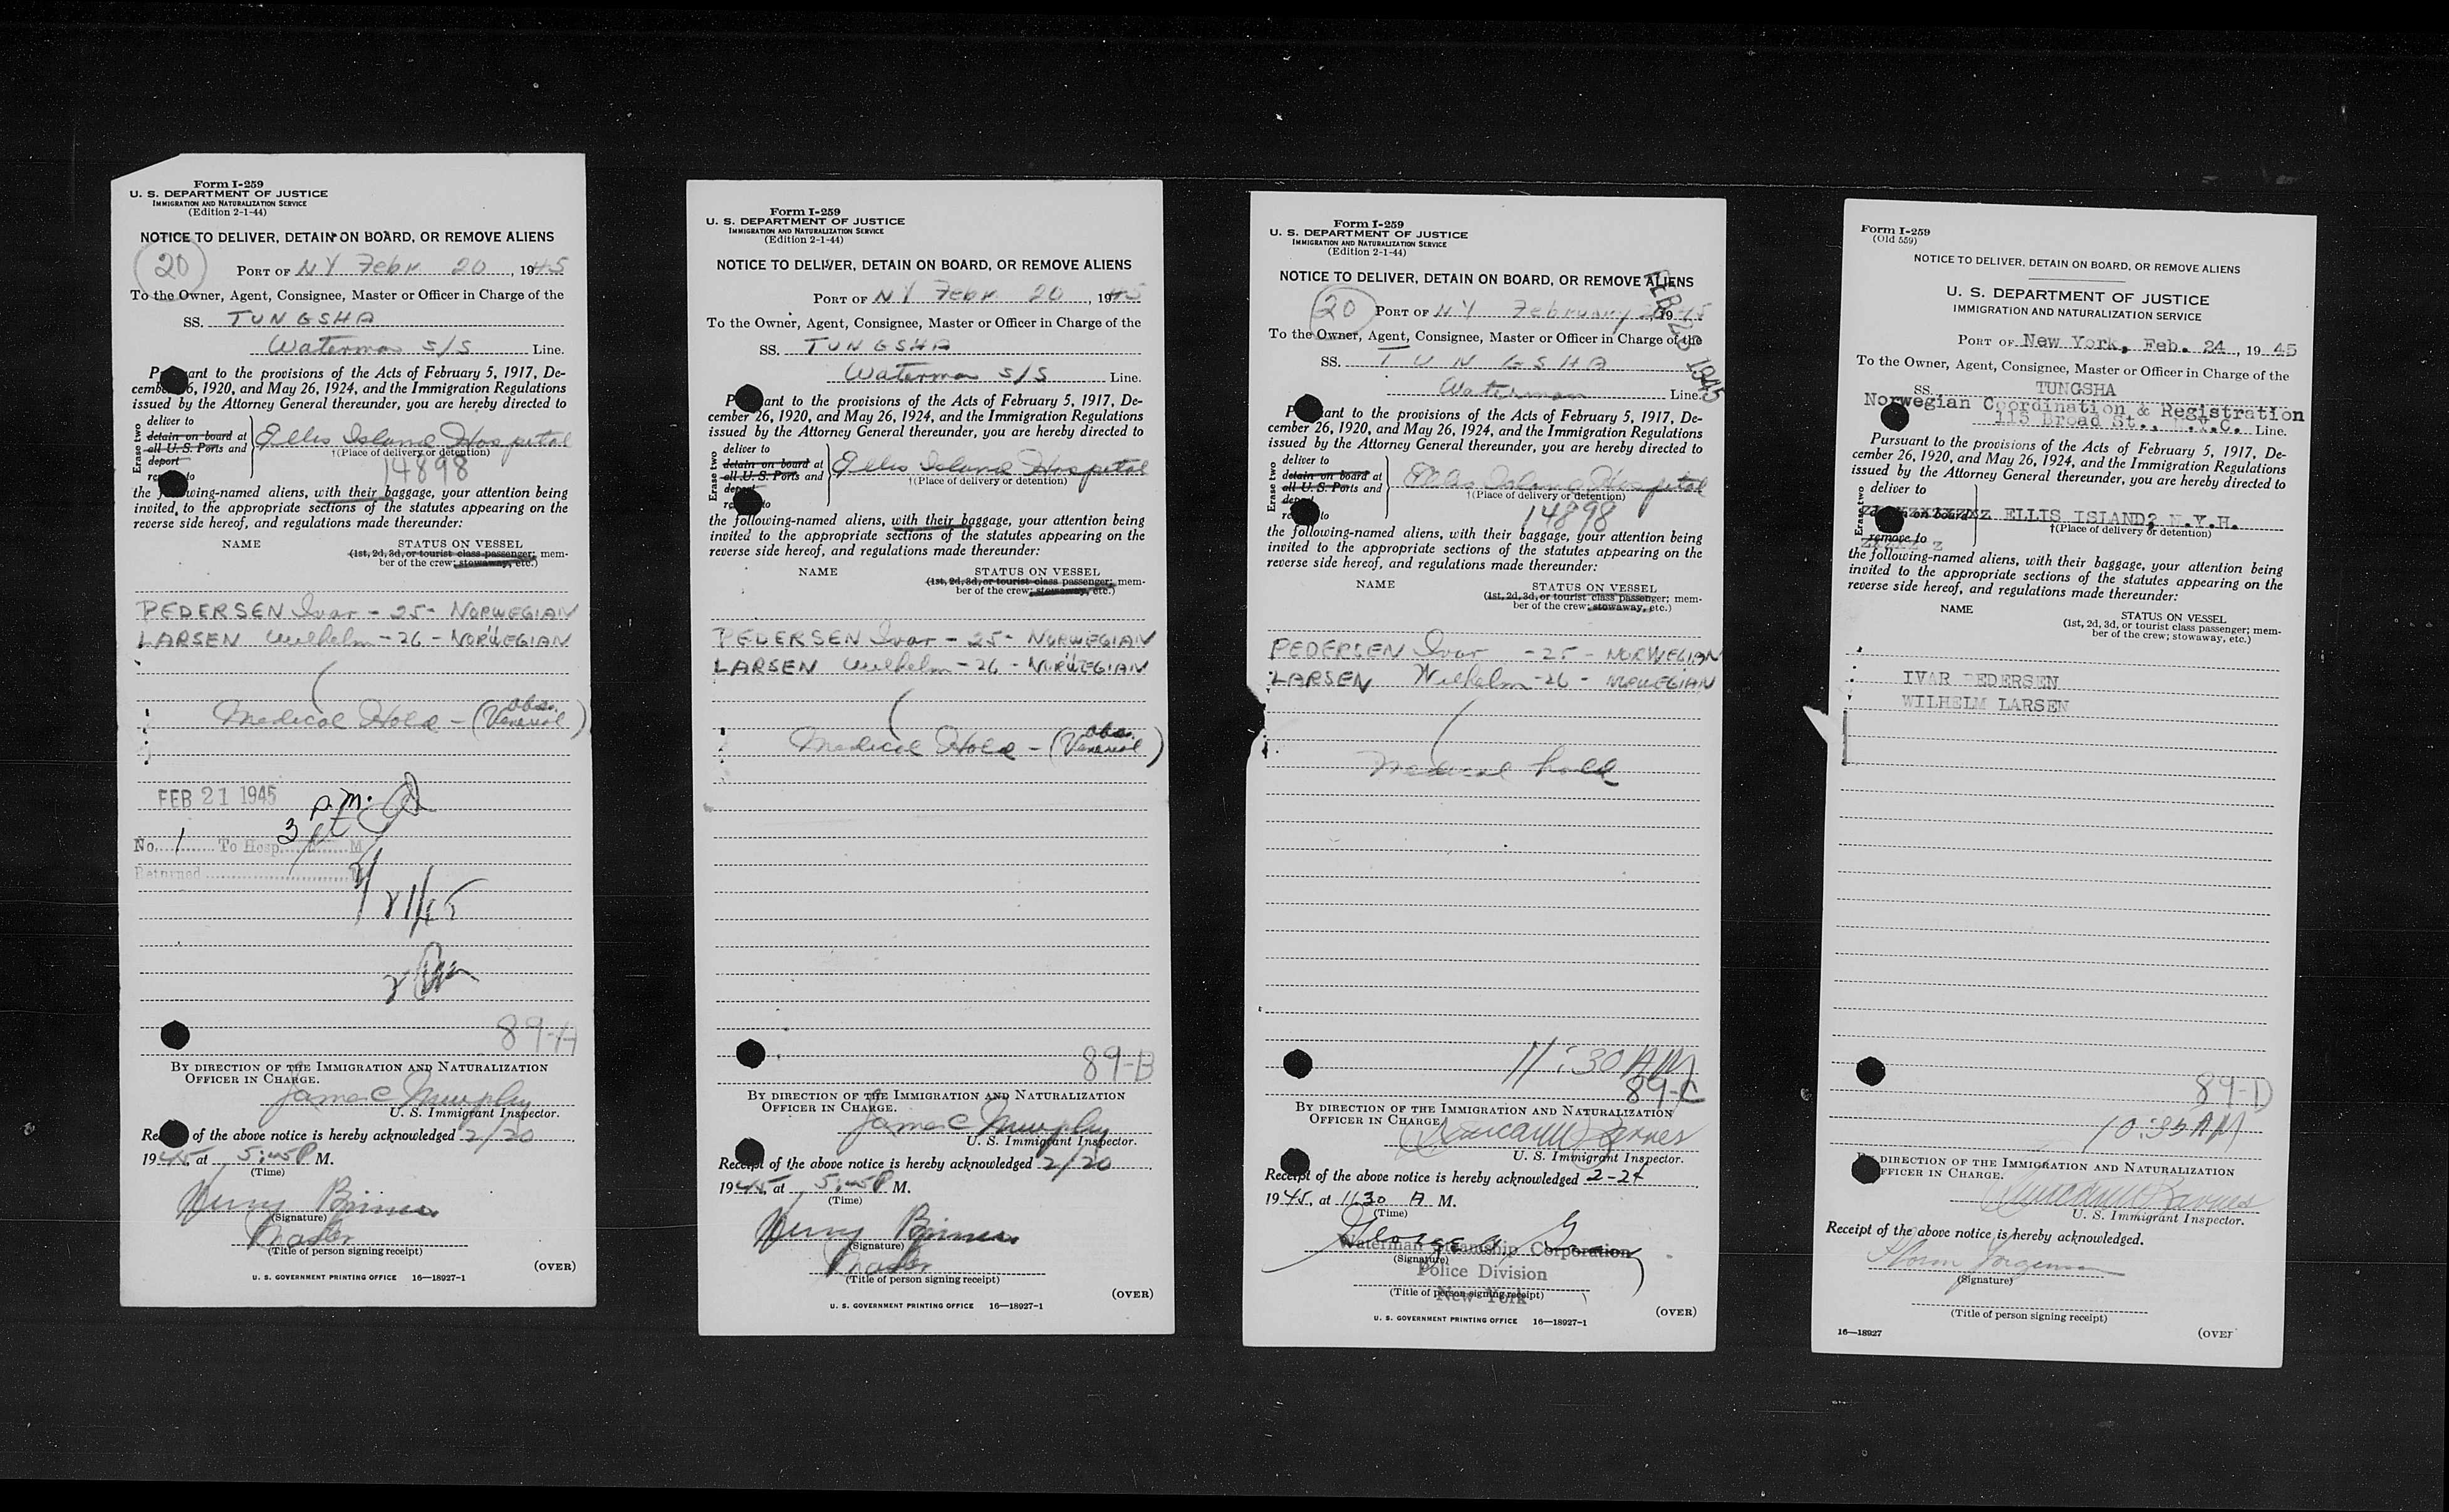 Form I-259
U. S. DEPARTMENT OF JUSTICE
IMMIGRATION AND NATURALIZATION SERVICE
(Edition 2-1-44)
NOTICE TO DELIVER, DETAIN ON BOARD, OR REMOVE ALIENS
20
PORT OF NY Febr. 20, 1945
To the Owner, Agent, Consignee, Master or Officer in Charge of the
SS. TUNGSHA
Waterman S/S Line.
P ant to the provisions of the Acts of February 5, 1917, De-
cember 26, 1920, and May 26, 1924, and the Immigration Regulations
issued by the Attorney General thereunder, you are hereby directed to
Erase two
deliver to
detain on board at
all U. S. Ports and
deport
re to
Ellis Island Hospital
†(Place of delivery or detention)
14898
the f wing-named aliens, with their baggage, your attention being
invited, to the appropriate sections of the statutes appearing on the
reverse side hereof, and regulations made thereunder:
NAME STATUS ON VESSEL
(1st, 2d, 3d, or tourist class passenger; mem-
ber of the crew; stowaway, etc.)
PEDERSEN Ivar - 25 - NORWEGIAN
LARSEN Wilhelm - 26 - NORWEGIAN
Medical Hold - (obs. Venereal)
FEB 21 1945 P.M.
No. 1 To Hosp. 3 M
Returned
2/21/45
89-A
BY DIRECTION OF THE IMMIGRATION AND NATURALIZATION
OFFICER IN CHARGE.
James C Murphy
U. S. Immigrant Inspector.
Re of the above notice is hereby acknowledged 2/20
1945, at 5:45 P M.
(Time)
Henry
(Signature)
Master
(Title of person signing receipt)
(OVER)
U. S. GOVERNMENT PRINTING OFFICE 16—18927-1
Form I-259
U. S. DEPARTMENT OF JUSTICE
IMMIGRATION AND NATURALIZATION SERVICE
(Edition 2-1-44)
NOTICE TO DELIVER, DETAIN ON BOARD, OR REMOVE ALIENS
PORT OF NY Febr. 20, 1945
To the Owner, Agent, Consignee, Master or Officer in Charge of the
SS. TUNGSHA
Waterman S/S Line.
P ant to the provisions of the Acts of February 5, 1917, De-
cember 26, 1920, and May 26, 1924, and the Immigration Regulations
issued by the Attorney General thereunder, you are hereby directed to
Erase two
deliver to
detain on board at
all U. S. Ports and
deport
re to
Ellis Island Hospital
†(Place of delivery or detention)
the following-named aliens, with their baggage, your attention being
invited to the appropriate sections of the statutes appearing on the
reverse side hereof, and regulations made thereunder:
NAME STATUS ON VESSEL
(1st, 2d, 3d, or tourist class passenger; mem-
ber of the crew; stowaway, etc.)
PEDERSEN Ivar - 25 - NORWEGIAN
LARSEN Wilhelm - 26 - NORWEGIAN
Medical Hold - (obs. Venereal)
89-B
BY DIRECTION OF THE IMMIGRATION AND NATURALIZATION
OFFICER IN CHARGE.
James C Murphy
U. S. Immigrant Inspector.
Receipt of the above notice is hereby acknowledged 2/20
1945, at 5:45 P M.
(Time)
Henry
(Signature)
Master
(Title of person signing receipt)
(OVER)
U. S. GOVERNMENT PRINTING OFFICE 16—18927-1
Form I-259
U. S. DEPARTMENT OF JUSTICE
IMMIGRATION AND NATURALIZATION SERVICE
(Edition 2-1-44)
NOTICE TO DELIVER, DETAIN ON BOARD, OR REMOVE ALIENS
20
PORT OF NY February 1945
To the Owner, Agent, Consignee, Master or Officer in Charge of the
SS. TUNGSHA
Waterman Line.
P ant to the provisions of the Acts of February 5, 1917, De-
cember 26, 1920, and May 26, 1924, and the Immigration Regulations
issued by the Attorney General thereunder, you are hereby directed to
Erase two
deliver to
detain on board at
all U. S. Ports and
deport
re to
Ellis Island Hospital
†(Place of delivery or detention)
14898
the following-named aliens, with their baggage, your attention being
invited to the appropriate sections of the statutes appearing on the
reverse side hereof, and regulations made thereunder:
NAME STATUS ON VESSEL
(1st, 2d, 3d, or tourist class passenger; mem-
ber of the crew; stowaway, etc.)
PEDERSEN Ivar - 25 - NORWEGIAN
LARSEN Wilhelm - 26 - NORWEGIAN
Medical hold
11:30 AM
89-C
BY DIRECTION OF THE IMMIGRATION AND NATURALIZATION
OFFICER IN CHARGE
U. S. Immigrant Inspector.
Receipt of the above notice is hereby acknowledged 2-24
1945, at 1130 A. M.
(Time)
George
Waterman Steamship Corporation
(Signature)
Police Division
New York
(Title of person signing receipt)
(OVER)
U. S. GOVERNMENT PRINTING OFFICE 16—18927-1
Form I-259
(Old 559)
NOTICE TO DELIVER, DETAIN ON BOARD, OR REMOVE ALIENS
U. S. DEPARTMENT OF JUSTICE
IMMIGRATION AND NATURALIZATION SERVICE
PORT OF New York, Feb. 24, 1945
To the Owner, Agent, Consignee, Master or Officer in Charge of the
SS. TUNGSHA
Norwegian Coordination & Registration
115 Broad St., N.Y.C. Line.
Pursuant to the provisions of the Acts of February 5, 1917, De-
cember 26, 1920, and May 26, 1924, and the Immigration Regulations
issued by the Attorney General thereunder, you are hereby directed to
Erase two
deliver to
on board
remove to
ELLIS ISLAND? N.Y.H.
†(Place of delivery or detention)
the following-named aliens, with their baggage, your attention being
invited to the appropriate sections of the statutes appearing on the
reverse side hereof, and regulations made thereunder:
NAME STATUS ON VESSEL
(1st, 2d, 3d, or tourist class passenger; mem-
ber of the crew; stowaway, etc.)
IVAR PEDERSEN
WILHELM LARSEN
89-D
10:35 AM
DIRECTION OF THE IMMIGRATION AND NATURALIZATION
FFICER IN CHARGE.
U. S. Immigrant Inspector.
Receipt of the above notice is hereby acknowledged.
(Signature)
(Title of person signing receipt)
16—18927
(OVER